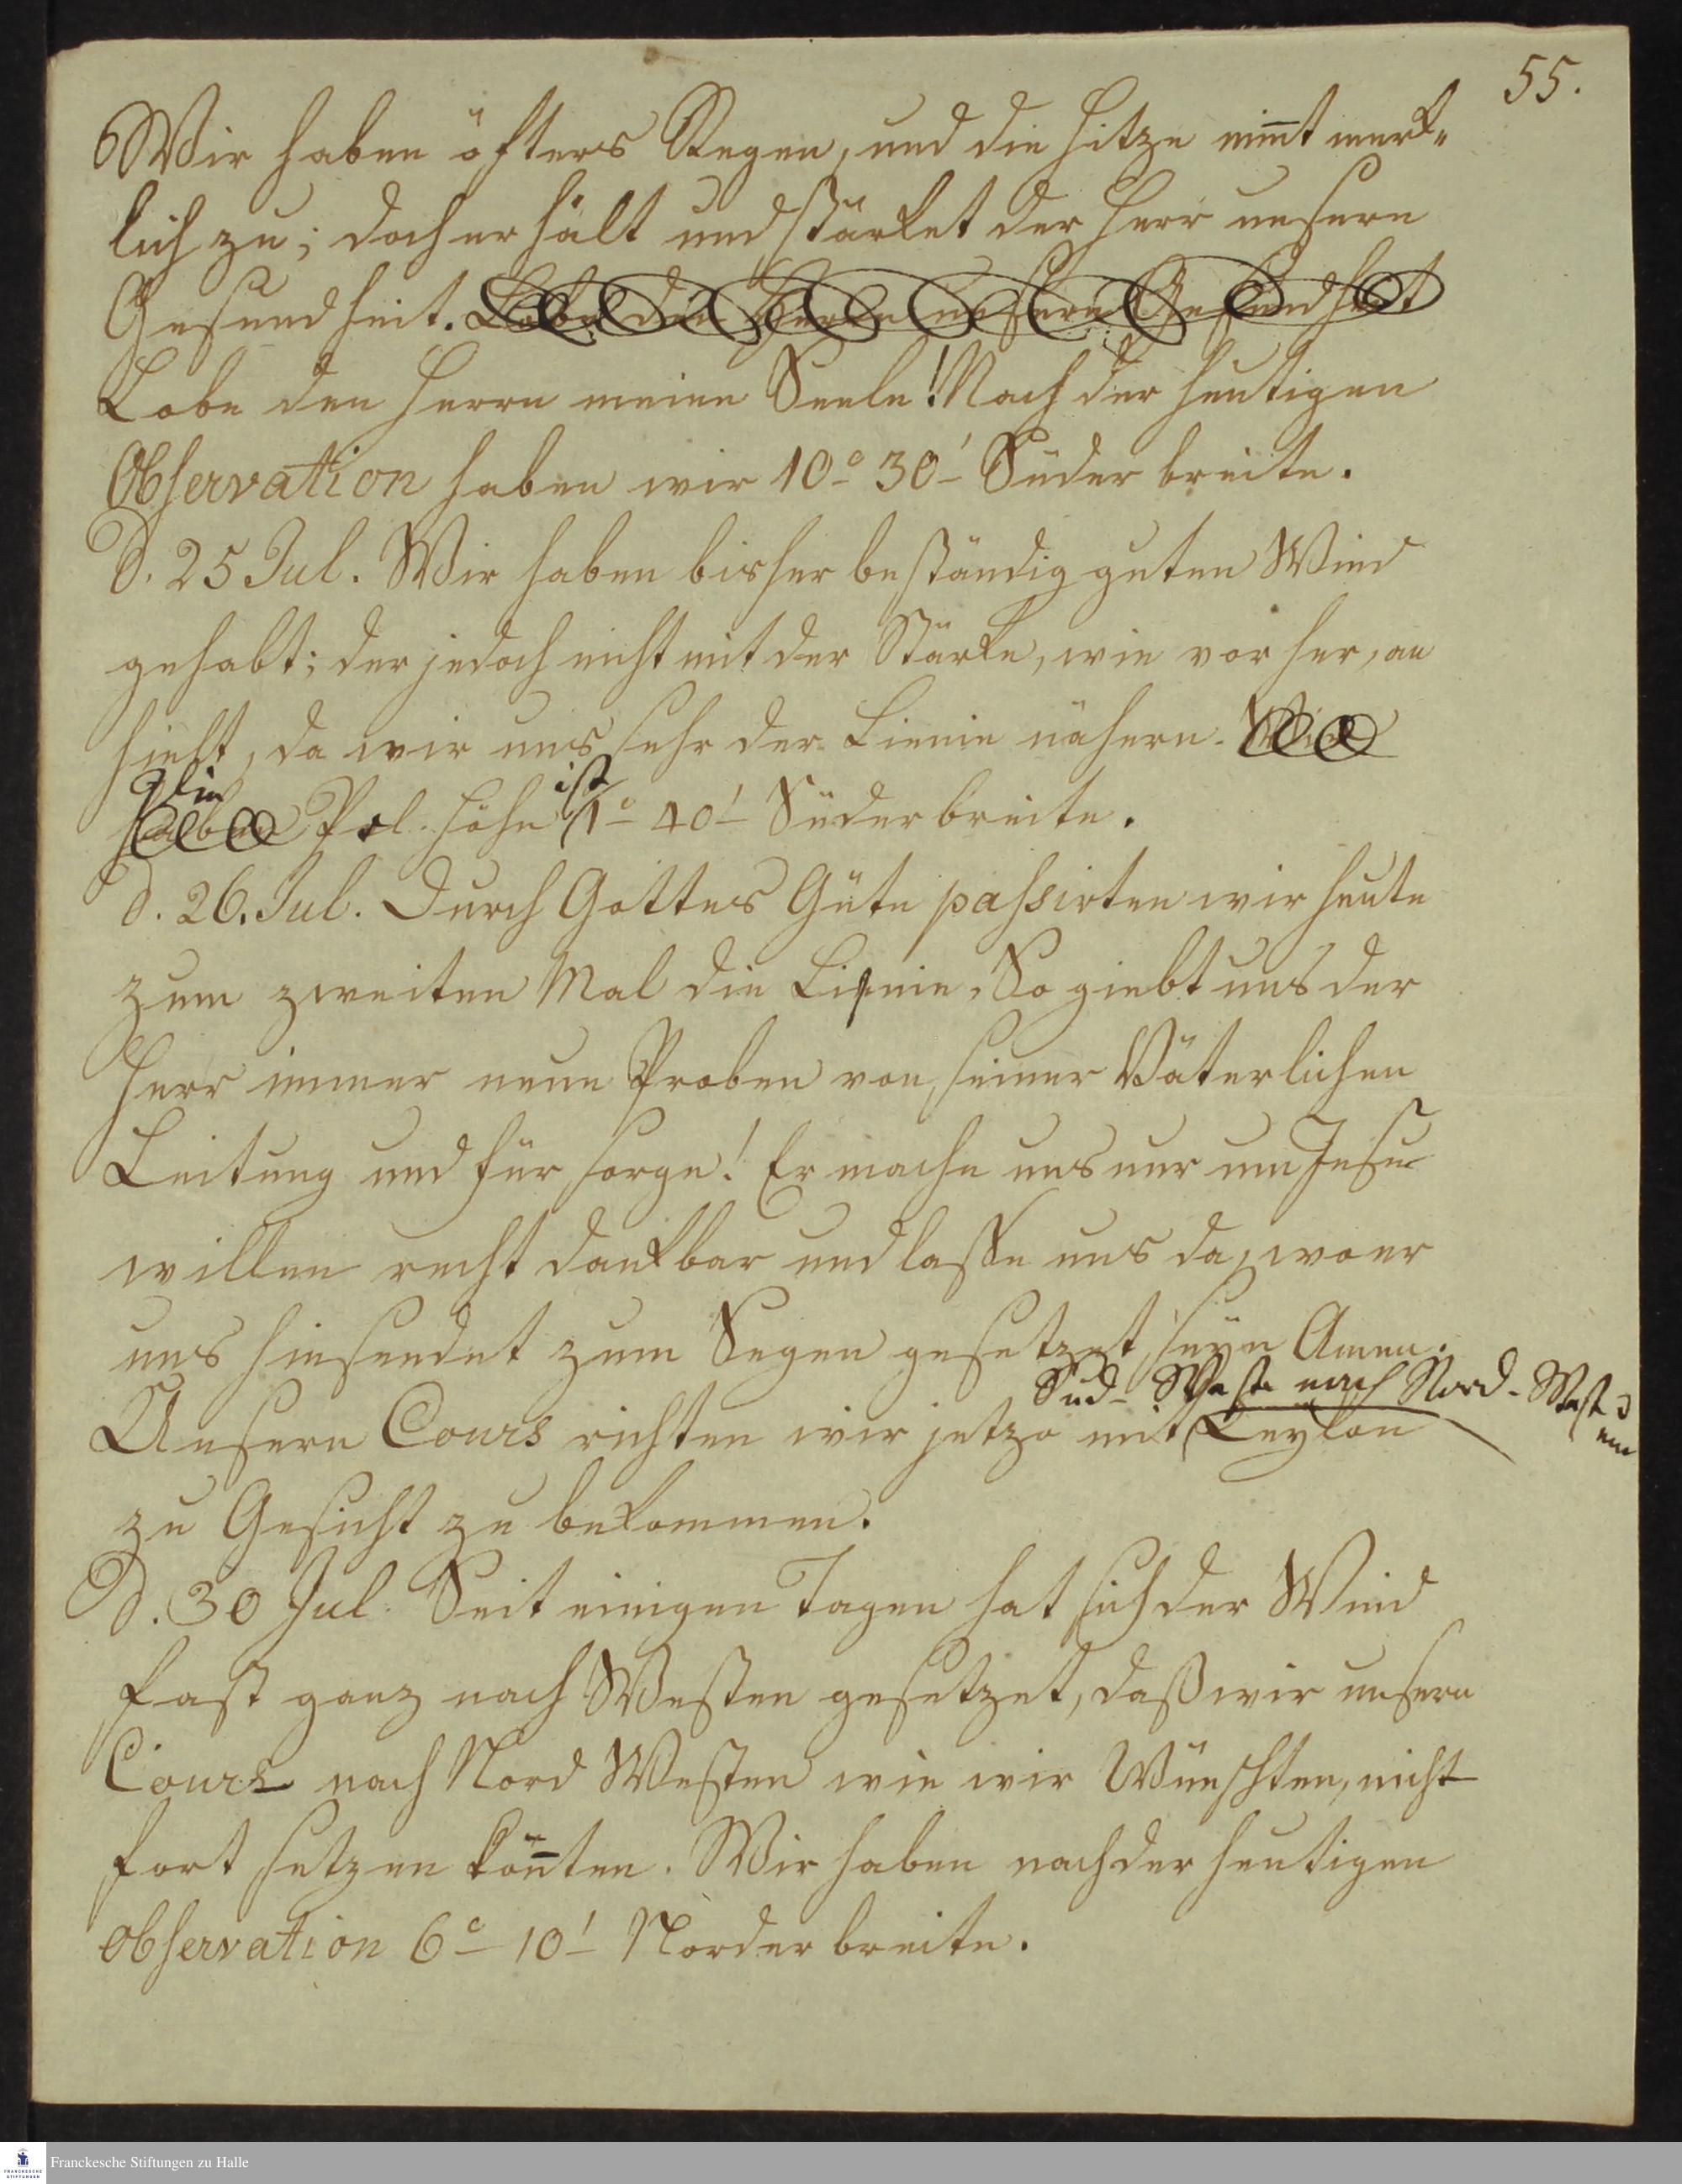 55.
Wir haben öfters Regen, und die Hitze nim̅t merk-
lich zu; doch erhält und stärket der Herr unsere
Gesundheit. Lobe den Herrn unsere Gesundheit
Lobe den Herrn meine Seele! Nach der heutigen
Observation haben wir 10° 30' Süder breite.
D. 25 Jul. Wir haben bisher beständig guten Wind
gehabt; der jedoch nicht mit der Stärke, wie vorher, an
hielt, da wir uns sehr der Linie nähern. Wir
haben Pol. höhe ist 1° 40' Süderbreite.
d. 26. Jul. Durch Gottes Güte passirten wir heute
zum zweiten Mal die Linie. So giebt uns der
Herr immer neue Proben von seiner Väterlichen
Leitung und fürsorge! Er mache uns nur um Jesu
willen recht dankbar und lasse uns da, wo er
uns hinsendet zum Segen gesetzet seyn Amen.
Süd-West nach Nord-West
um
Unsern Cours richten wir jetzo mit Zeylon
zu Gesicht zu bekommen.
D. 30 Jul. Seit einigen Tagen hat sich der Wind
fast ganz nach Westen gesetzet, daß wir unsern
Cours nach Nord Westen wie wir Wünschten, nicht
fort setzen kön̅ten. Wir haben nach der heutigen
Observation 6° 10' Norder breite.
Franckesche Stiftungen zu Halle